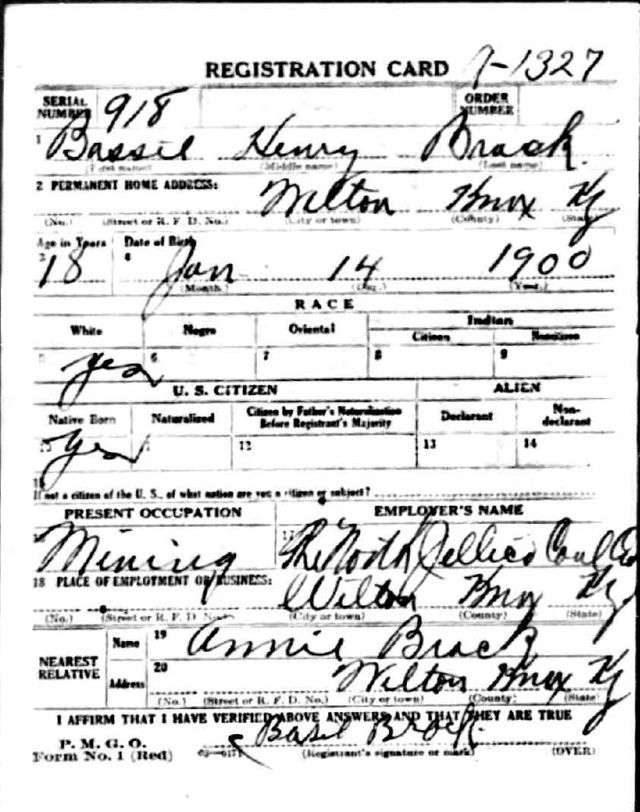 REGISTRATION CARD 9-1327
SERIAL NUMBER 918 ORDER NUMBER
1 Bassil Henry Brock
(First name) (Middle name) (Last name)
2 PERMANENT HOME ADDRESS: Wilton Knox Ky
(No.) (Street or R. F. D. No.) (City or town) (County) (State)
Age in Years Date of Birth
3 18 4 Jan 14 1900
(Month.) (Day.) (Year.)
RACE
White Negro Oriental Indian
Citizen Noncitizen
5 yes 6 7 8 9
U. S. CITIZEN ALIEN
Native Born Naturalized Citizen by Father's Naturalization Before Registrant's Majority Declarant Non-declarant
10 yes 12 13 14
If not a citizen of the U. S., of what nation are you a citizen or subject?
PRESENT OCCUPATION EMPLOYER'S NAME
Mining 17 The North Jellico Coal Co
18 PLACE OF EMPLOYMENT OR BUSINESS: Wilton Knox Ky
(No.) (Street or R. F. D. No.) (City or town) (County) (State)
NEAREST RELATIVE
Name 19 Annie Brock
Address 20 Wilton Knox Ky
(No.) (Street or R. F. D. No.) (City or town) (County) (State)
I AFFIRM THAT I HAVE VERIFIED ABOVE ANSWERS AND THAT THEY ARE TRUE
P. M. G. O.
Form No. 1 (Red) Basil Brock.
(Registrant's signature or mark) (OVER)